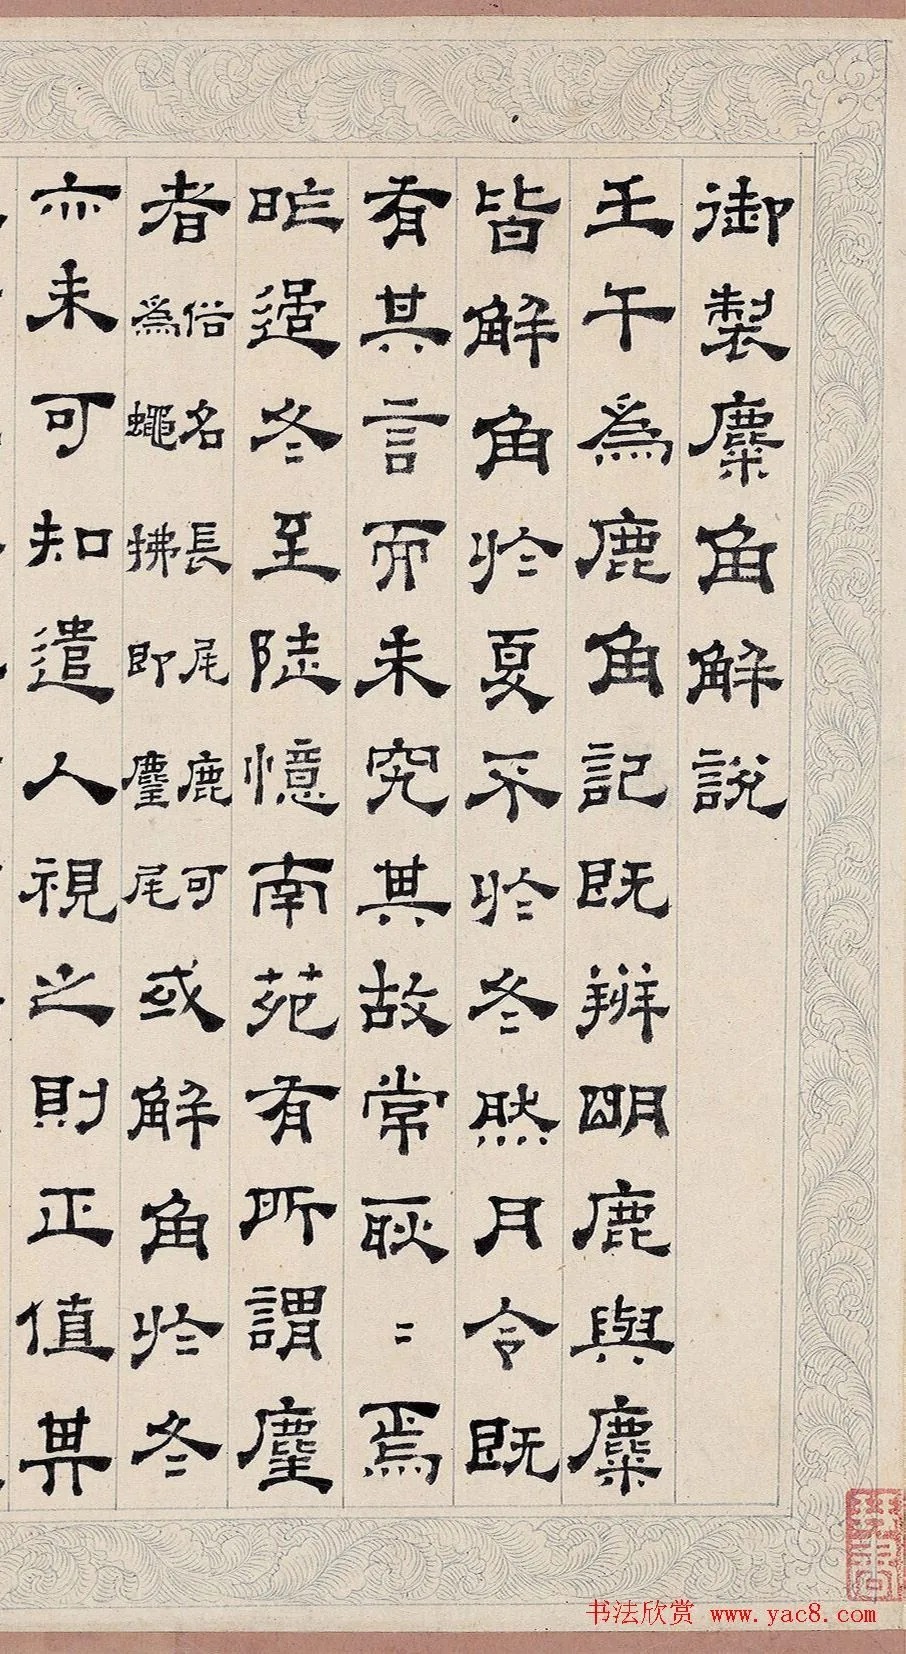 御製麋角解說
壬午為鹿角記既辨明鹿與麋
皆解角於夏不於冬然月令既
有其言而未究其故常耿〻焉
昨過冬至陡憶南苑有所謂麈
者俗名長尾鹿可為蠅拂即麈尾或解角於冬
亦未可知遣人視之則正值其
书法欣赏 www.yac8.com